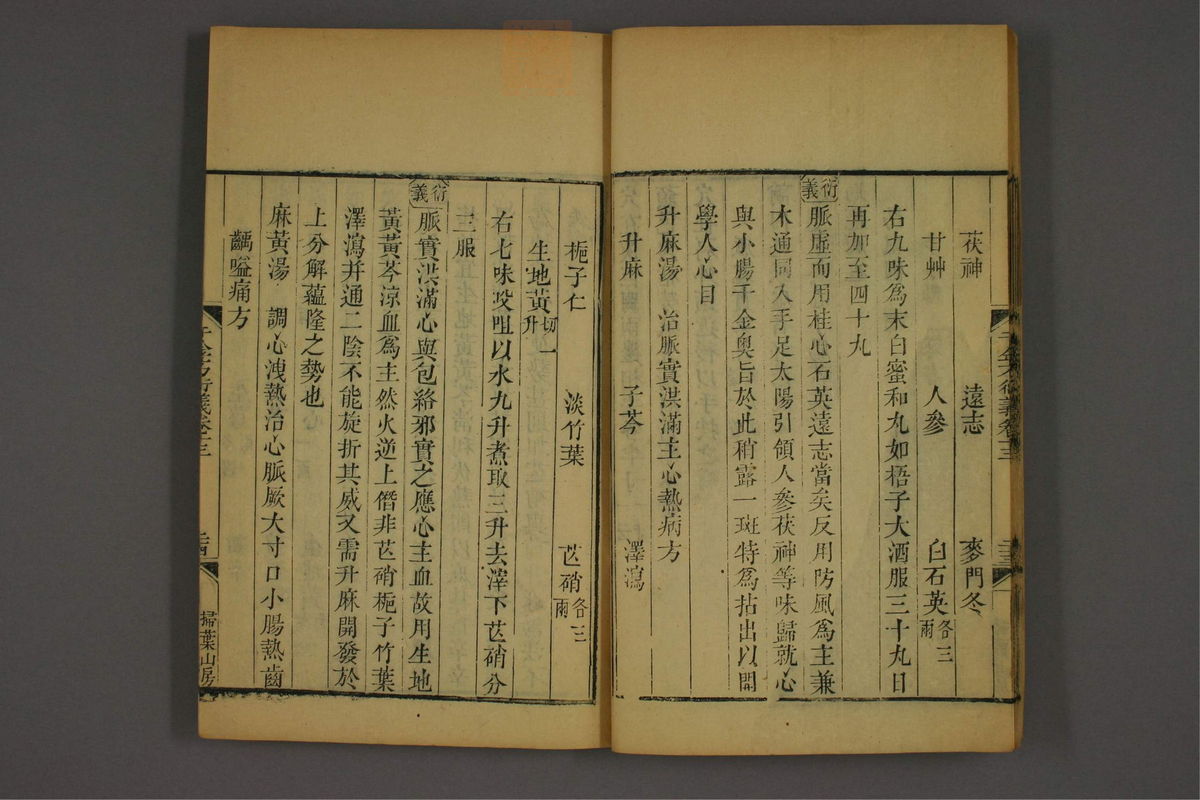 茯神 遠志 麥門冬
甘艸 人參 白石英各三兩
右九味爲末白蜜和丸如梧子大酒服三十丸日
再加至四十丸
衍義 脈虛而用桂心石英遠志當矣反用防風爲主兼
木通同入手足太陽引領人參茯神等味歸就心
與小腸千金奧旨於此稍露一斑特爲拈出以開
學人心目
升麻湯 治脈實洪滿主心熱病方
升麻 子芩 澤瀉
梔子仁 淡竹葉 芒硝各三兩
生地黃切一升
右七味㕮咀以水九升煮取三升去滓下芒硝分
三服
衍義 脈實洪滿心與包絡邪實之應心主血故用生地
黃黃芩涼血爲主然火逆上僭非芒硝梔子竹葉
澤瀉并通二陰不能旋折其威又需升麻開發於
上分解蘊隆之勢也
麻黃湯 調心洩熱治心脈厥大寸口小腸熱齒
齲嗌痛方
千金方衍義卷十三 二十四
掃葉山房